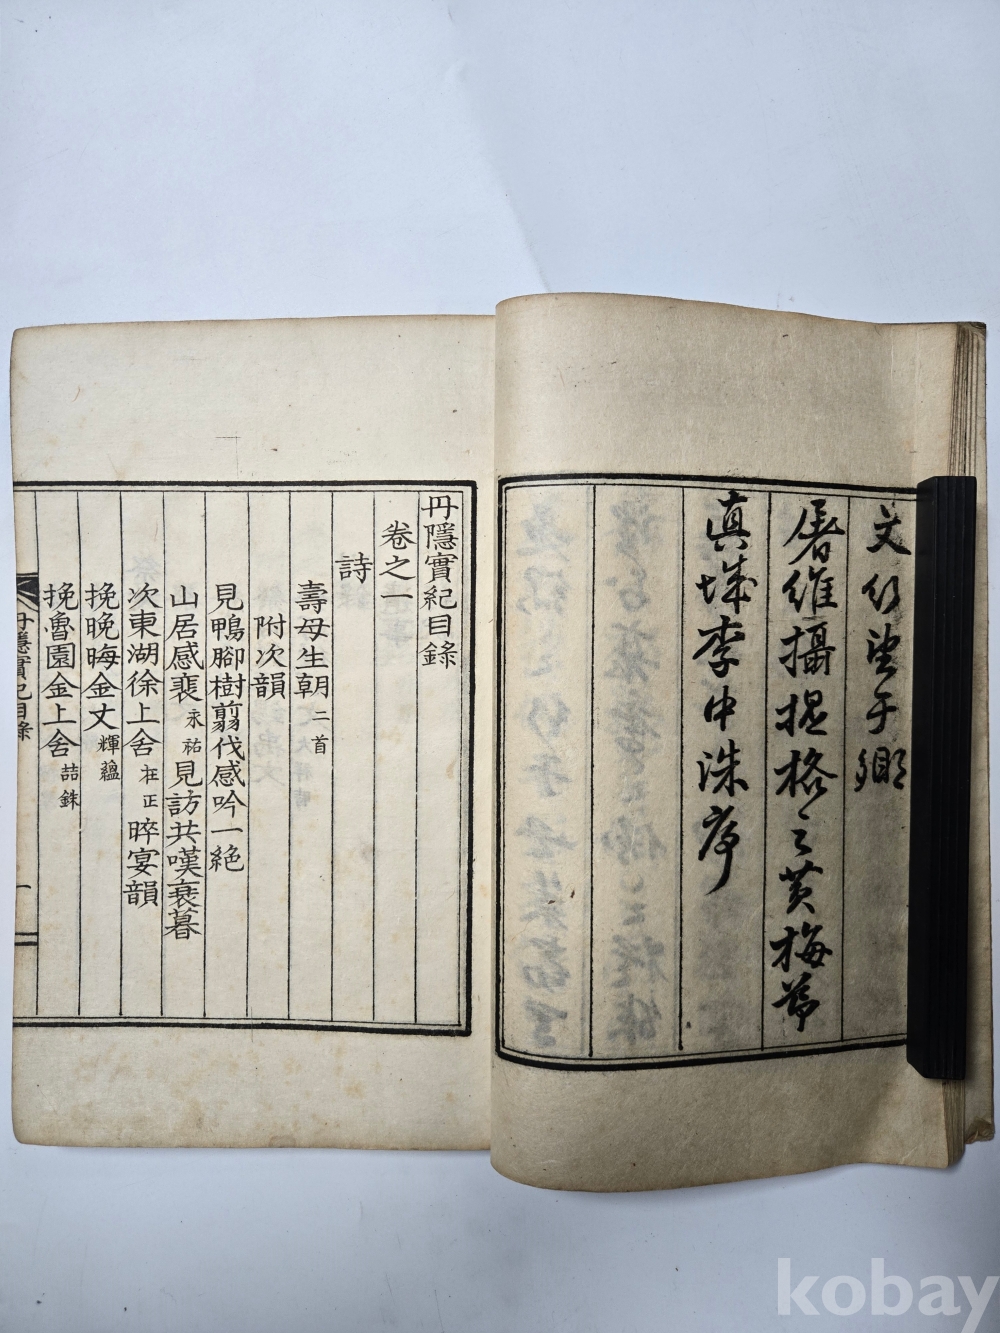 文行望于鄉
屠維攝提格之黃梅節
眞城李中洙序
丹隱實紀目錄
卷之一
詩
壽母生朝 二首
附次韻
見鴨腳樹翦伐感吟一絕
山居感裵 永祐 見訪共嘆衰暮
次東湖徐上舍 在正 晬宴韻
挽晚晦金丈 輝蘊
挽魯園金上舍 喆銖
丹隱實紀目錄
一
kobay